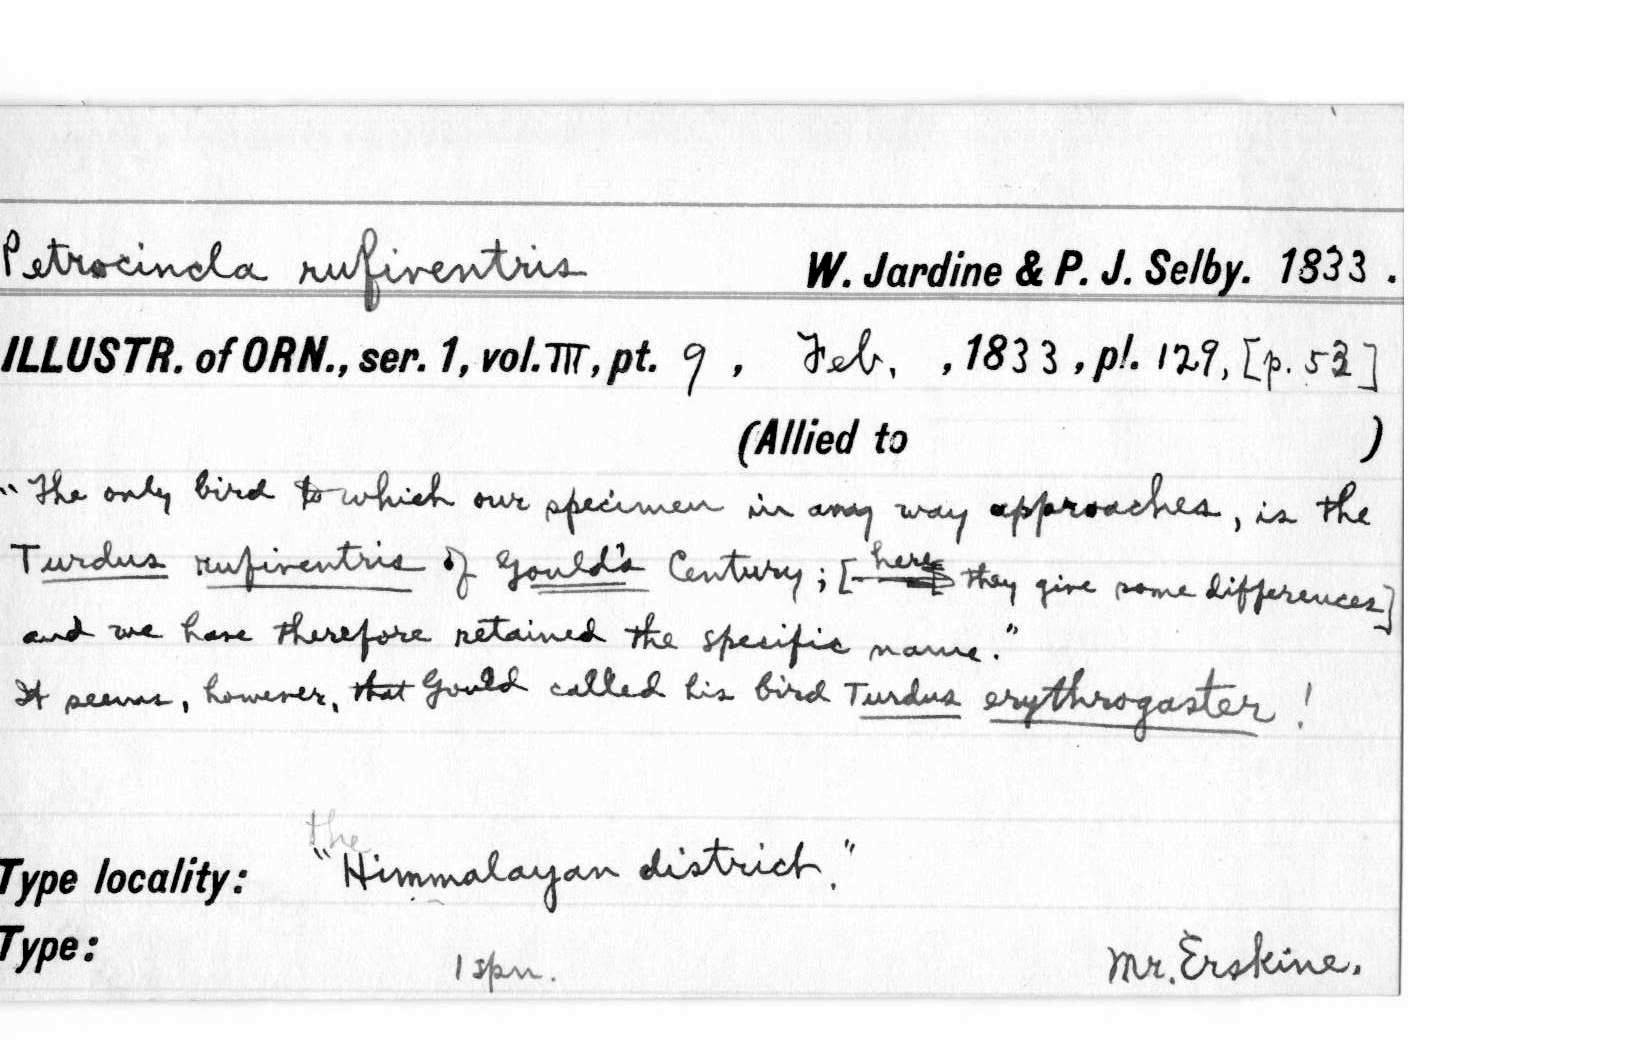 Petrocincla rufiventris W. Jardine & P. J. Selby. 1833.
ILLUSTR. of ORN., ser. 1, vol. III, pt. 9, Feb. , 1833, pl. 129, [p. 53]
(Allied to )
"The only bird to which our specimen in any way approaches, is the
Turdus rufiventris of Gould's Century; [here they give some differences]
and we have therefore retained the specific name."
It seems, however, that Gould called his bird Turdus erythrogaster!
the
Type locality: "Himmalayan district."
Type: 1 spn. Mr. Erskine.